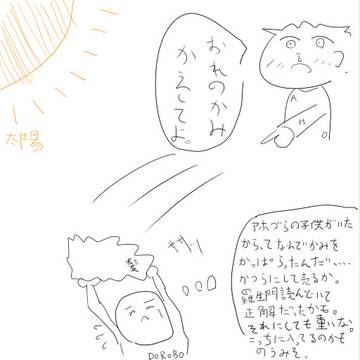 太陽
おれのかみ
かえしてよ。
AHO
ザザッ
髪
DOROBO
アホづらの子供がいた
からってなんでかみを
かっぱらったんだ、…
かつらにして売るか。
羅生門読んどいて
正解だったかも。
それにしても重いな、
こっちに入ってるのかも
のうみそ。